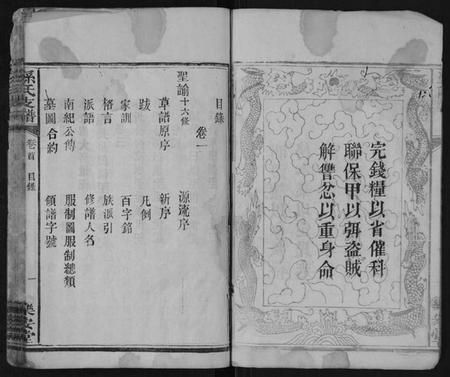 完錢糧以省催科
聯保甲以弭盜賊
解讐忿以重身命
目錄
卷一
聖諭十六條 源流序
草譜原序 新序
跋 凡例
家訓 百字銘
格言 族派引
派語 修譜人名
南紀公傳 服制圖服制總類
墓圖合約 領譜字號
孫氏支譜
卷首 目錄
一
樂安堂